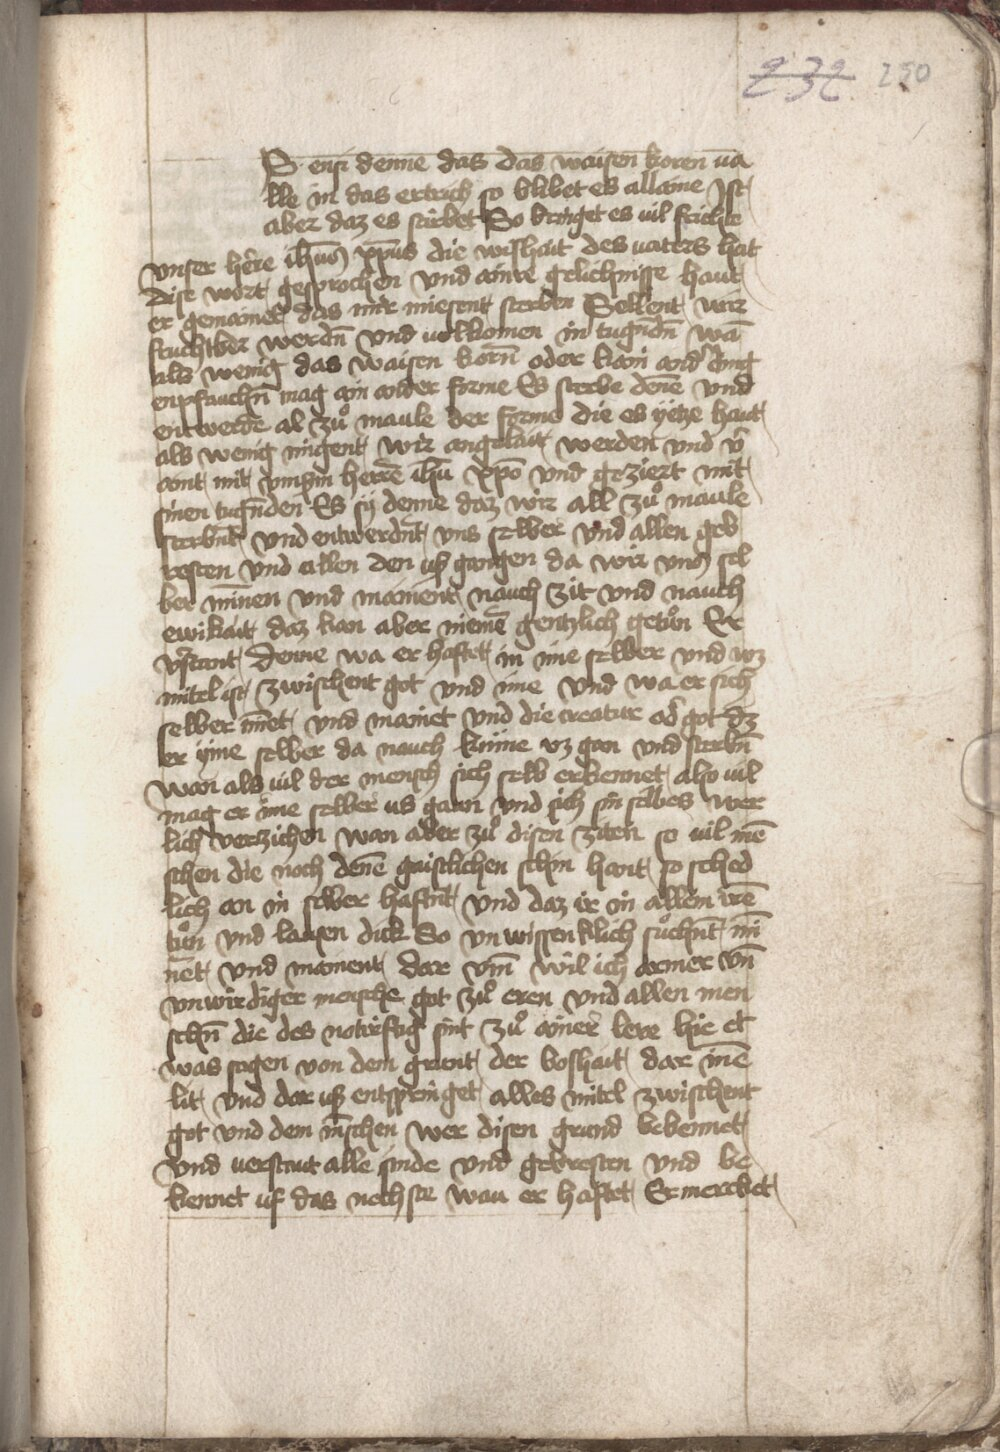 232 250
S ensi denne das das waisen koren va
lle in das ertrich so blibet es allaine Ist
aber daz es stirbet So bringet es vil frúhte
vnser hêre ihus xpus die wishait des vaters hat
dise wort gesprochen vnd ainre gelichnisse haut
er gemainet das mir miesent sterben Sellent wir
fruchtber werdn vnd volkomen in tugndn wā
als wenig das waisen korn oder kain and ding
enpfauchn mag ain ander forme Es sterbe denē vnd
entwerde al zů maule der forme die es yetze haut
als wenig mugent wir angelait werden vnd v̄
aint mit vnsrm herrē ihū xpō vnd geziert mit
sinen tugnden Es sy denne daz wir all zů maule
sterbnt vnd entwerdnt vns selber vnd allen geb
resten vnd allen den vß gangen da wir vns sel
ber minen vnd mainent nauch zit vnd nauch
ewikait daz kan aber niemē gentzlich getůn Er
vstant denne wa er haftet in ime selber vnd wz
mitel ist zwischent got vnd ime vnd wa er sich
selber met vnd mainet vnd die creatur od got dz
er yme selber da nauch kúnne vz gan vnd sterbn
wan als vil der mensch sich selb erkennet also vil
mag er ime selber us gaun vnd sich sin selbes wer
lich verzichen wan aber zů disen ziten so vil mē
schen die noch denē gaistlichen schin hant so sched
lich an in selber haftnt vnd daz ir in allem irē
tůn vnd lassen dick So vnwissenklich sůchnt mi
net vnd mainent dar vm wil ich armer vn̄
vnwirdiger mensche got zů eren vnd allen men
schn die des notirftig sint zů ainer lere hie et
was sagen von dem grunt der boshait dar ine
lit vnd dar uß entspringet alles mitel zwischent
got vnd dem mschen wer disen grund bekennet
vnd verstaut alle sinde vnd gebresten vnd be
kennet uf das nechste wau er haftet Er mercket